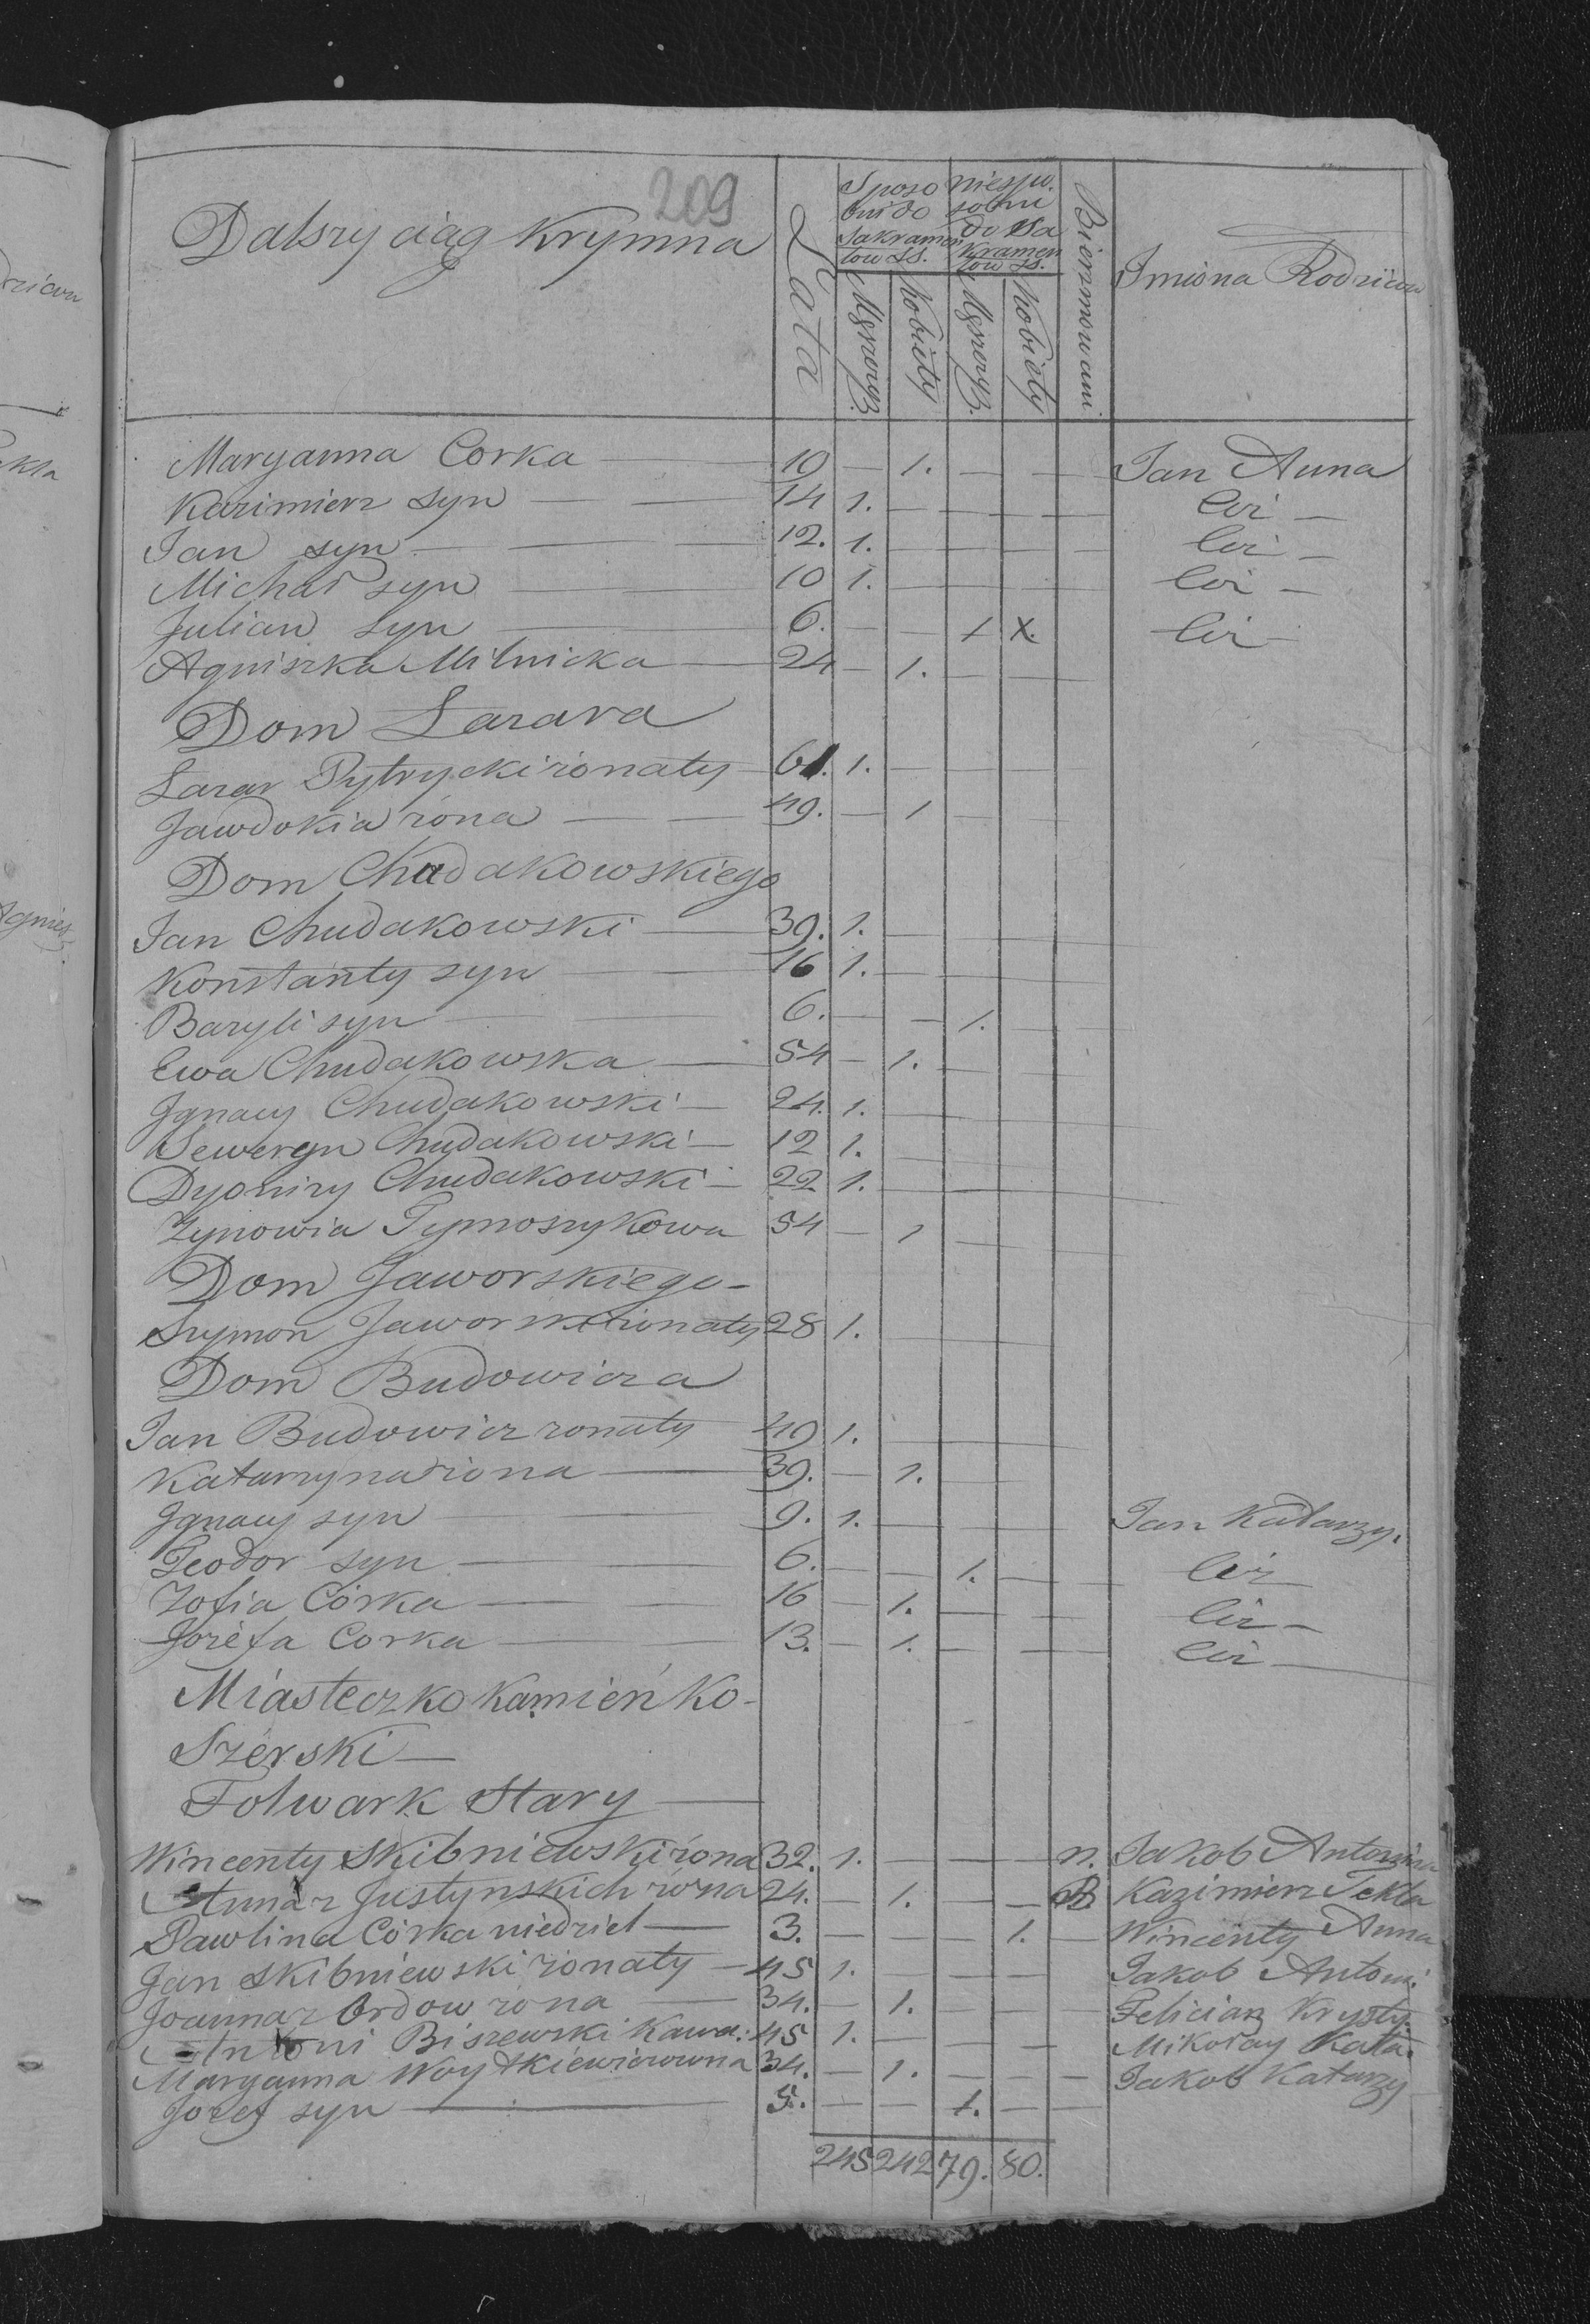 209
Dalszy ciąg Krymna
Lata
Sposobni do Sakramentow SS.
niesposobni do Sakramentow SS.
Męszczyz.
Kobiéty
Męszczyz.
Kobiéty
Bierzmowani
Imiona Rodzicow
Maryanna Corka — 10 — 1. — — Jan Anna
Kazimierz syn — — 14 1. — — — — Ciż —
Jan syn — — — 12. 1. — — — — Ciż —
Michał syn — — 10 1. — — — — Ciż —
Julian syn — — 6. — — 1 X. Ciż —
Agniszka Milnicka — 24 — 1. — — —
Dom Lazara
Lazar Pytrycki żonaty — 61. 1. — — —
Jawdokia żona — — 49. — 1 — —
Dom Chudakowskiego
Jan Chudakowski — 39. 1. — — —
Konstanty syn — — 16 1. — — —
Bazyli syn — — 6. — — 1. —
Ewa Chudakowska — 54 — 1. — —
Ignacy Chudakowski — 24. 1. — — —
Seweryn Chudakowski — 12 1. — — —
Dyonizy Chudakowski — 22 1. — — —
Zynowia Tymoszykowa 54 — 1 — —
Dom Jaworskiego —
Szymon Jaworski żonaty 28 1. — — —
Dom Budowicza
Jan Budowicz żonaty 49 1. — — —
Katarzyna żona — 39. — 1. — —
Ignacy syn — — 9. 1. — — — — Jan Katarzy.
Teodor syn — — 6. — — 1. — — Ciż —
Zofia Córka — — 16 — 1. — — — Ciż —
Jozéfa Corka — — 13. — 1. — — — Ciż —
Miasteczko Kamień Ko-
Szérski —
Folwark Stary —
Wincenty Skibniewski żona 32. 1. — — — n. Jakob Antonina
Anna z Justynskich żóna 24. — 1. — — Kazimierz Tekla
Pawlina Córka niedziel — 3. — — — 1. — Wincenty Anna
Jan Skibniewski żonaty — 45 1. — — — Jakob Antoni.
Joanna z Ordow żona — 34. — 1. — — — Felician Krysty.
Antoni Biszewski Kawa: 45 1. — — — — Mikołay Kata.
Maryanna Woytkiewiczowna 34. — 1. — — — Jakob Katarzy
Jozef syn — 5. — — 1. — —
245 242 79. 80.